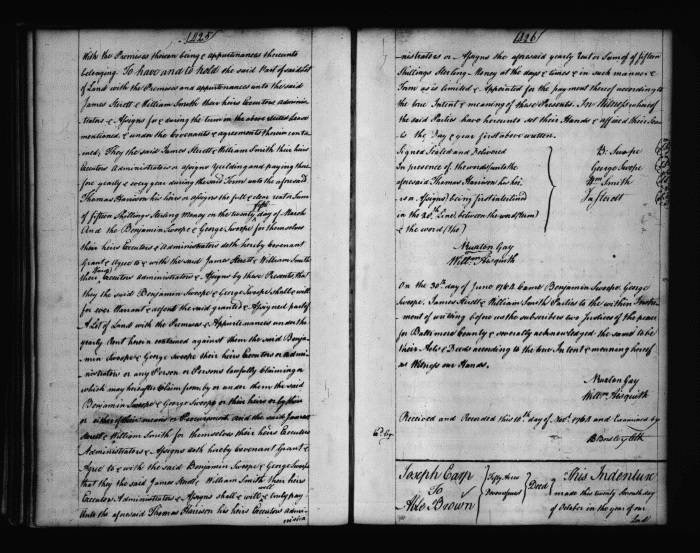 1225
With the Premises thereon being & appurtenances thereunto
belonging To have and to hold the said Part of said Lot
of Land with the Premises and appurtenances unto the said
James Sterett & William Smith their heirs Executors Adminis-
trators & Assigns for & during the term in the above Lease
mentioned & under the Covenants & agreements therein contai-
ned, They the said James Sterett & William Smith their heirs
Executors Administrators or assigns Yeilding and paying there
fore yearly & every year during the said Term unto the aforesaid
Thomas Harrison his heirs or assigns the full & clear rent or Sum
of fifteen Shillings Sterling Money on the twenty first day of March
And the Benjamin Swope & George Swope for themselves
their heirs Executors & Administrators doth hereby Covenant
Grant & Agree to & with the said James Sterett & William Smith
their Executors Administrators & Assigns by these Presents that
they the said Benjamin Swope & George Swope shall & will
for ever Warrant & defend the said granted & Assigned part of
A Lot of Land with the Premises & Appurtenances under the
yearly Rent herein contained against them the said Benja-
min Swope & George Swope their heirs Executors or Admi-
nistrators or any Person or Persons lawfully Claiming or
which may hereafter Claim from by or under them the said
Benjamin Swope & George Swope or their heirs or by their
or either of their means or Procurement And the said James
Sterett & William Smith for themselves their heirs Executors
Administrators & Assigns doth hereby Covenant Grant &
Agree to & with the said Benjamin Swope & George Swope
that they the said James Sterett & William Smith their heirs
Executors Administrators & Assigns shall & will well & truly pay
Unto the aforesaid Thomas Harrison his heirs Executors Admi-
nistra
1226
nistrators or Assigns the aforesaid yearly Rent or Sum of fifteen
Shillings Sterling Money at the days & times & in such manner &
Form as is limited & Appointed for the payment thereof according to
the true Intent & meaning of these Presents. In Witness whereof
the said Parties have hereunto set their Hands & affixed their Seals
the Day & year first above written.
Signed Sealed and Delivered
In presence of the words (unto the
aforesaid Thomas Harrison his hei-
rs or Assigns) being first interlined
in the 20th Line between the word (term)
& the word (the)
B: Swope
George Swope
Wm Smith
Js Sterett
Nicholas Ruxton Gay
Willm Aisquith
On the 30th day of June 1764 Came Benjamin Swope George
Swope, James Sterett & William Smith Parties to the within Instru-
ment of writing before us the subscribers two Justices of the peace
for Baltimore County & severally acknowledged the same to be
their Acts & Deeds according to the true Intent & meaning hereof
as Witness our Hands.
Ruxton Gay
Willm Aisquith
Received and Recorded this 10th day of Novr 1764 and Examined by
B Bordley Clk
Joseph Earp
To
Able Brown
Fifty Acres
Deed
This Indenture
made this twenty Seventh day
of October in the year of our
Lord